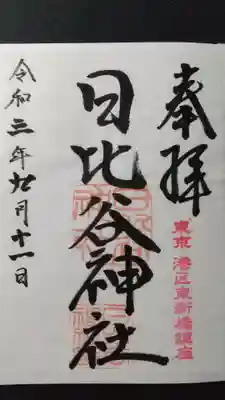 奉拝
東京 港区東新橋鎮座
日比谷神社
令和三年十一月十一日